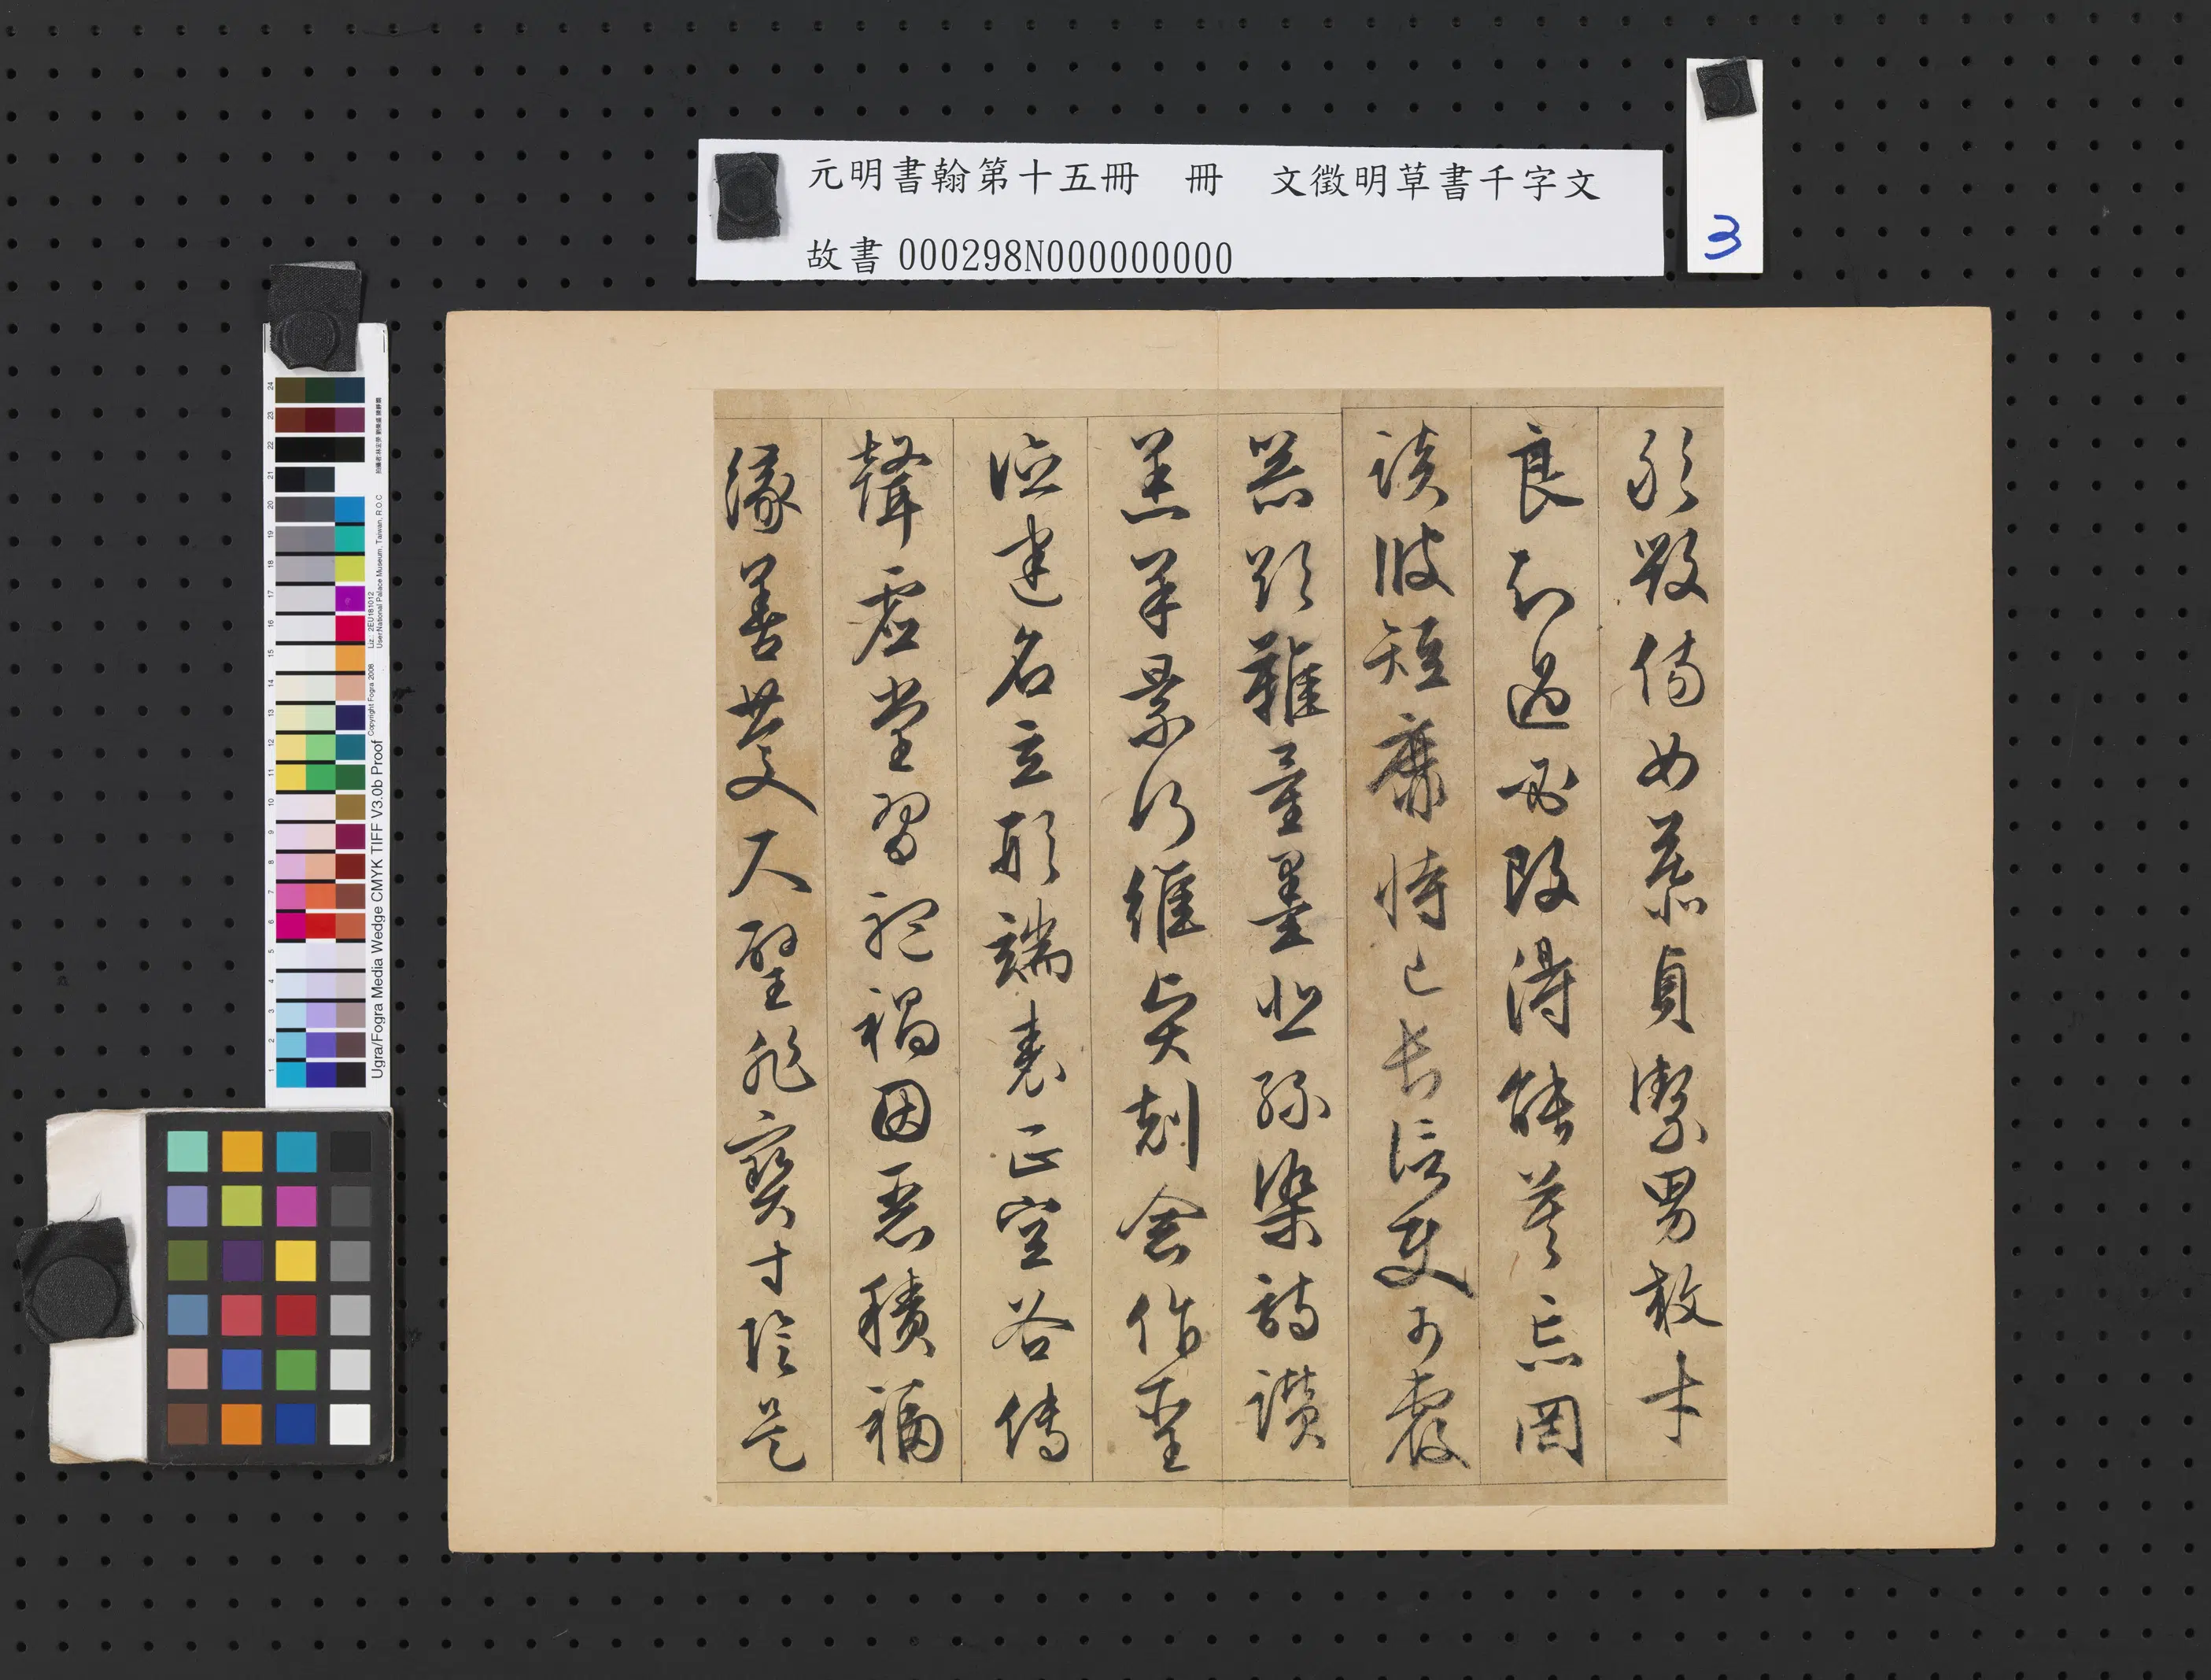 元明書翰第十五冊　冊　文徵明草書千字文
故書 000298N000000000
3
敢毀傷女慕貞潔男效才
良知過必改得能莫忘罔
談彼短靡恃己長信使可覆
器欲難量墨悲絲染詩讚
羔羊景行維賢剋念作聖
德建名立形端表正空谷傳
聲虛堂習聽禍因惡積福
緣善慶尺璧非寶寸陰是
Ugra/Fogra Media Wedge CMYK TIFF V3.0b Proof
Copyright Fogra 2008
Liz.: 2EU181012
User:National Palace Museum, Taiwan, R.O.C
24
23
22
21
20
19
18
17
16
15
14
13
12
11
10
9
8
7
6
5
4
3
2
1